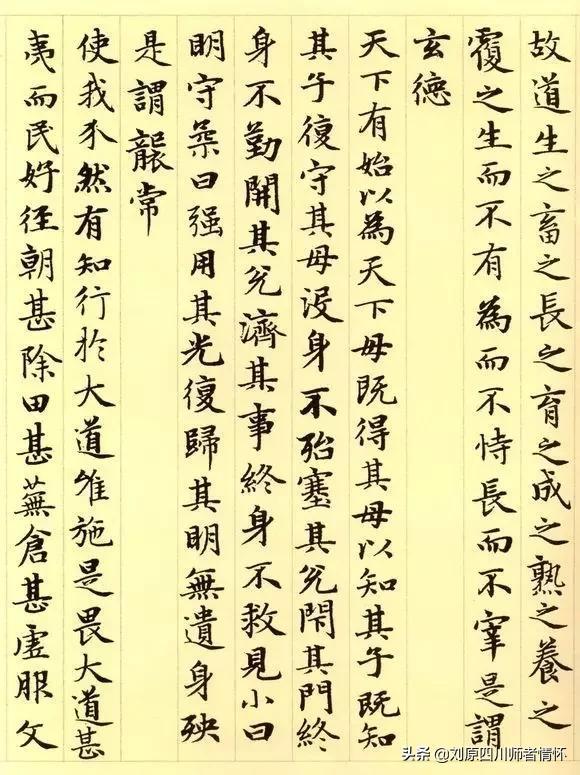 故道生之畜之長之育之成之熟之養之
覆之生而不有為而不恃長而不宰是謂
玄德
天下有始以為天下母既得其母以知其子既知
其子復守其母沒身不殆塞其兌閉其門終
身不勤開其兌濟其事終身不救見小曰
明守柔曰强用其光復歸其明無遺身殃
是謂襲常
使我介然有知行於大道唯施是畏大道甚
夷而民好徑朝甚除田甚蕪倉甚虛服文
头条 @刘原四川师者情怀